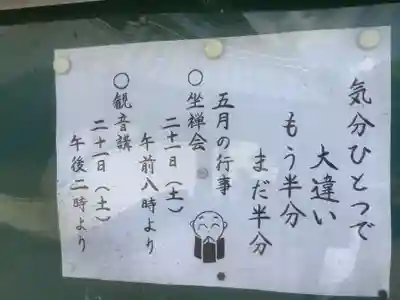 気分ひとつで
大違い
もう半分
まだ半分
五月の行事
○坐禅会
二十一日(土)
午前八時より
○観音講
二十一日(土)
午後二時より